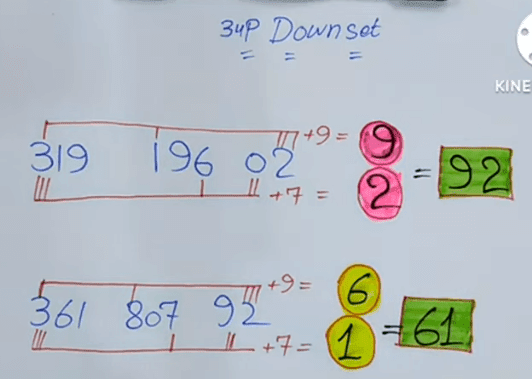 3UP Downset
KINE
+9 = 9
319 196 02 = 92
+7 = 2
+9 = 6
361 807 92 = 61
+7 = 1